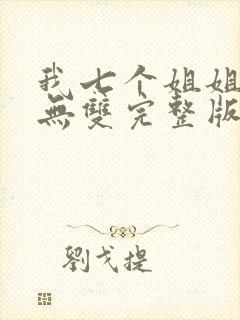 我七个姐姐
無雙完整版
劉戈提